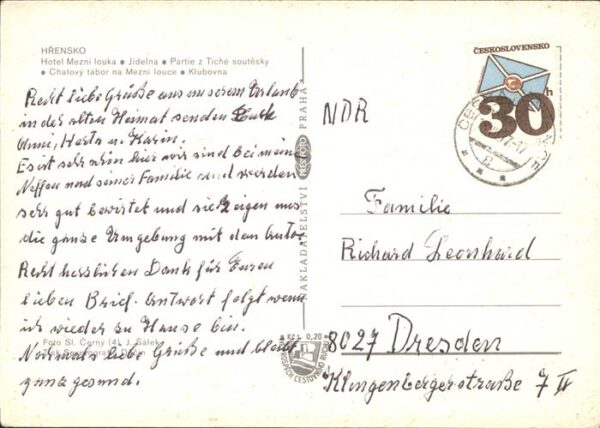 HŘENSKO
Hotel Mezní louka ● Jídelna ● Partie z Tiché soutěsky
● Chatový tábor na Mezní louce ● Klubovna
Recht liebe Grüße aus unserem Urlaub
in der alten Heimat senden Euch
Anni, Herta u. Karin.
Es ist sehr schön hier wir sind bei meinem
Neffen und seiner Familie und werden
sehr gut bewirtet und sie zeigen uns
die ganze Umgebung mit dem Auto.
Recht herzlichen Dank für Euren
lieben Brief. Antwort folgt wenn
ich wieder zu Hause bin.
Nochmals liebe Grüße und bleibt
ganz gesund.
Foto St. Černý (4), J. Sálek
NAKLADATELSTVÍ PRAHA
Kčs 0,20
ČESKOSLOVENSKO
30h
NDR
Familie
Richard Leonhard
8027 Dresden
Klingenbergerstraße 7 II